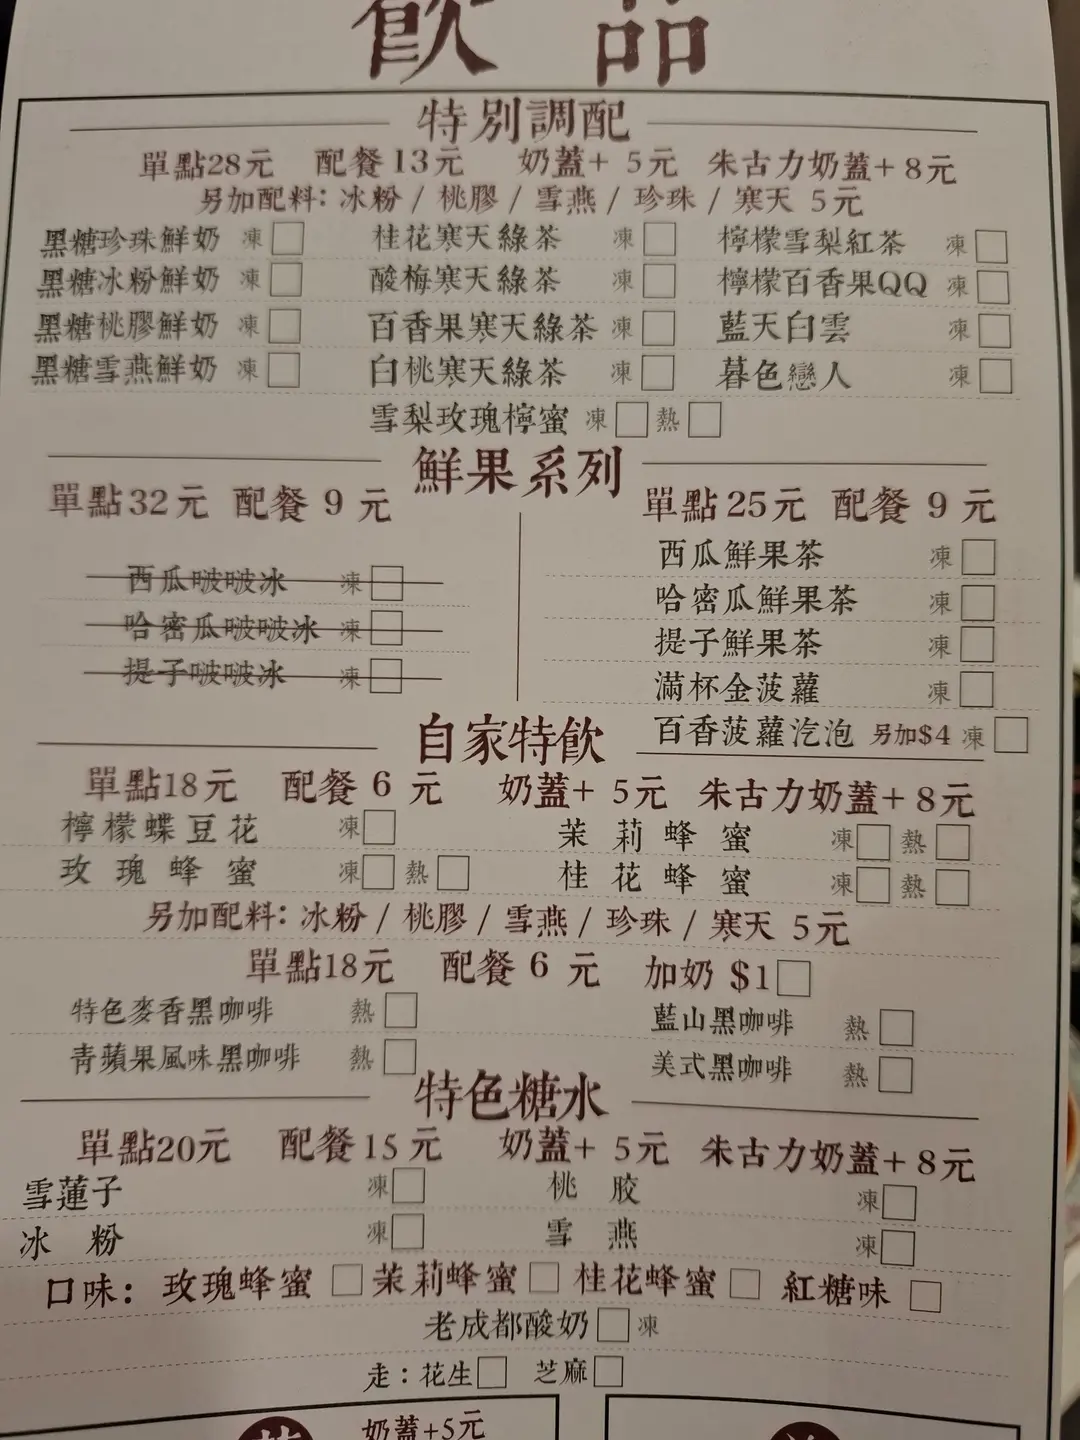 飲 品
特別調配
單點28元 配餐13元 奶蓋+ 5元 朱古力奶蓋+8元
另加配料: 冰粉 / 桃膠 / 雪燕 / 珍珠 / 寒天 5元
黑糖珍珠鮮奶 凍 桂花寒天綠茶 凍 檸檬雪梨紅茶 凍
黑糖冰粉鮮奶 凍 酸梅寒天綠茶 凍 檸檬百香果QQ 凍
黑糖桃膠鮮奶 凍 百香果寒天綠茶 凍 藍天白雲 凍
黑糖雪燕鮮奶 凍 白桃寒天綠茶 凍 暮色戀人 凍
雪梨玫瑰檸蜜 凍 熱
鮮果系列
單點32元 配餐 9 元
西瓜啵啵冰 凍
哈密瓜啵啵冰 凍
提子啵啵冰 凍
單點25元 配餐 9 元
西瓜鮮果茶 凍
哈密瓜鮮果茶 凍
提子鮮果茶 凍
滿杯金菠蘿 凍
百香菠蘿汔泡 另加$4 凍
自家特飲
單點18元 配餐 6 元 奶蓋+ 5元 朱古力奶蓋+8元
檸檬蝶豆花 凍 茉莉蜂蜜 凍 熱
玫瑰蜂蜜 凍 熱 桂花蜂蜜 凍 熱
另加配料: 冰粉 / 桃膠 / 雪燕 / 珍珠 / 寒天 5元
單點18元 配餐 6 元 加奶 $1
特色麥香黑咖啡 熱 藍山黑咖啡 熱
青蘋果風味黑咖啡 熱 美式黑咖啡 熱
特色糖水
單點20元 配餐15元 奶蓋+ 5元 朱古力奶蓋+8元
雪蓮子 凍 桃胶 凍
冰粉 凍 雪燕 凍
口味: 玫瑰蜂蜜 茉莉蜂蜜 桂花蜂蜜 紅糖味
老成都酸奶 凍
走: 花生 芝麻
奶蓋+5元